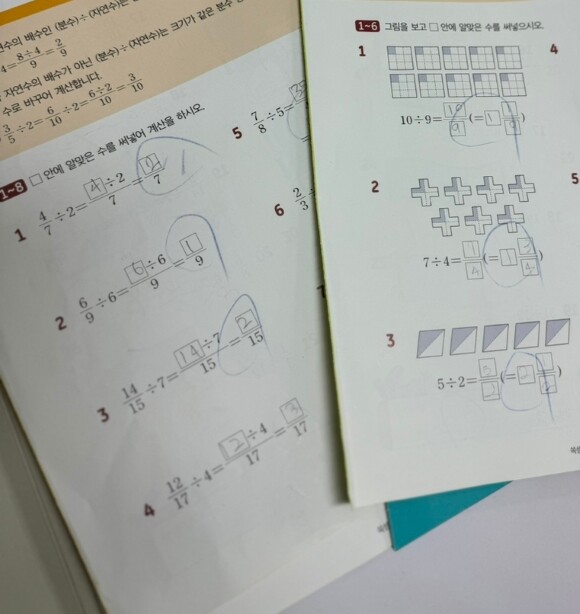 연수의 배수인 (분수)÷(자연수)는
4=8÷4/9=2/9
자연수의 배수가 아닌 (분수)÷(자연수)는 크기가 같은 분수
수로 바꾸어 계산합니다.
3/5÷2=6/10÷2=6÷2/10=3/10
1~8 □ 안에 알맞은 수를 써넣어 계산을 하시오.
1 4/7÷2=4÷2/7=2/7
2 6/9÷6=6÷6/9=1/9
3 14/15÷7=14÷7/15=2/15
4 12/17÷4=2÷4/17=3/17
5 7/8÷5=
6 2/3÷
1~6 그림을 보고 □ 안에 알맞은 수를 써넣으시오.
1
10÷9=10/9(=1 1/9)
2
7÷4=1/4(=1 3/4)
3
5÷2=5/2(=2 1/2)
4
5